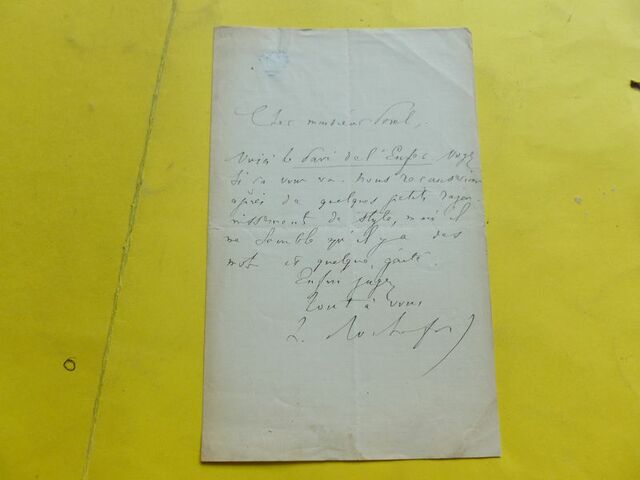 Cher monsieur Porel,
Voici le Pavé de l'Enfer Voyez
si ça vous va. Nous recauserions
après de quelques petits rajeu-
nissements de style, mais il
me semble qu'il y a des
mots et quelque gaîté.
Enfin jugez
Tout à vous
Rochefort